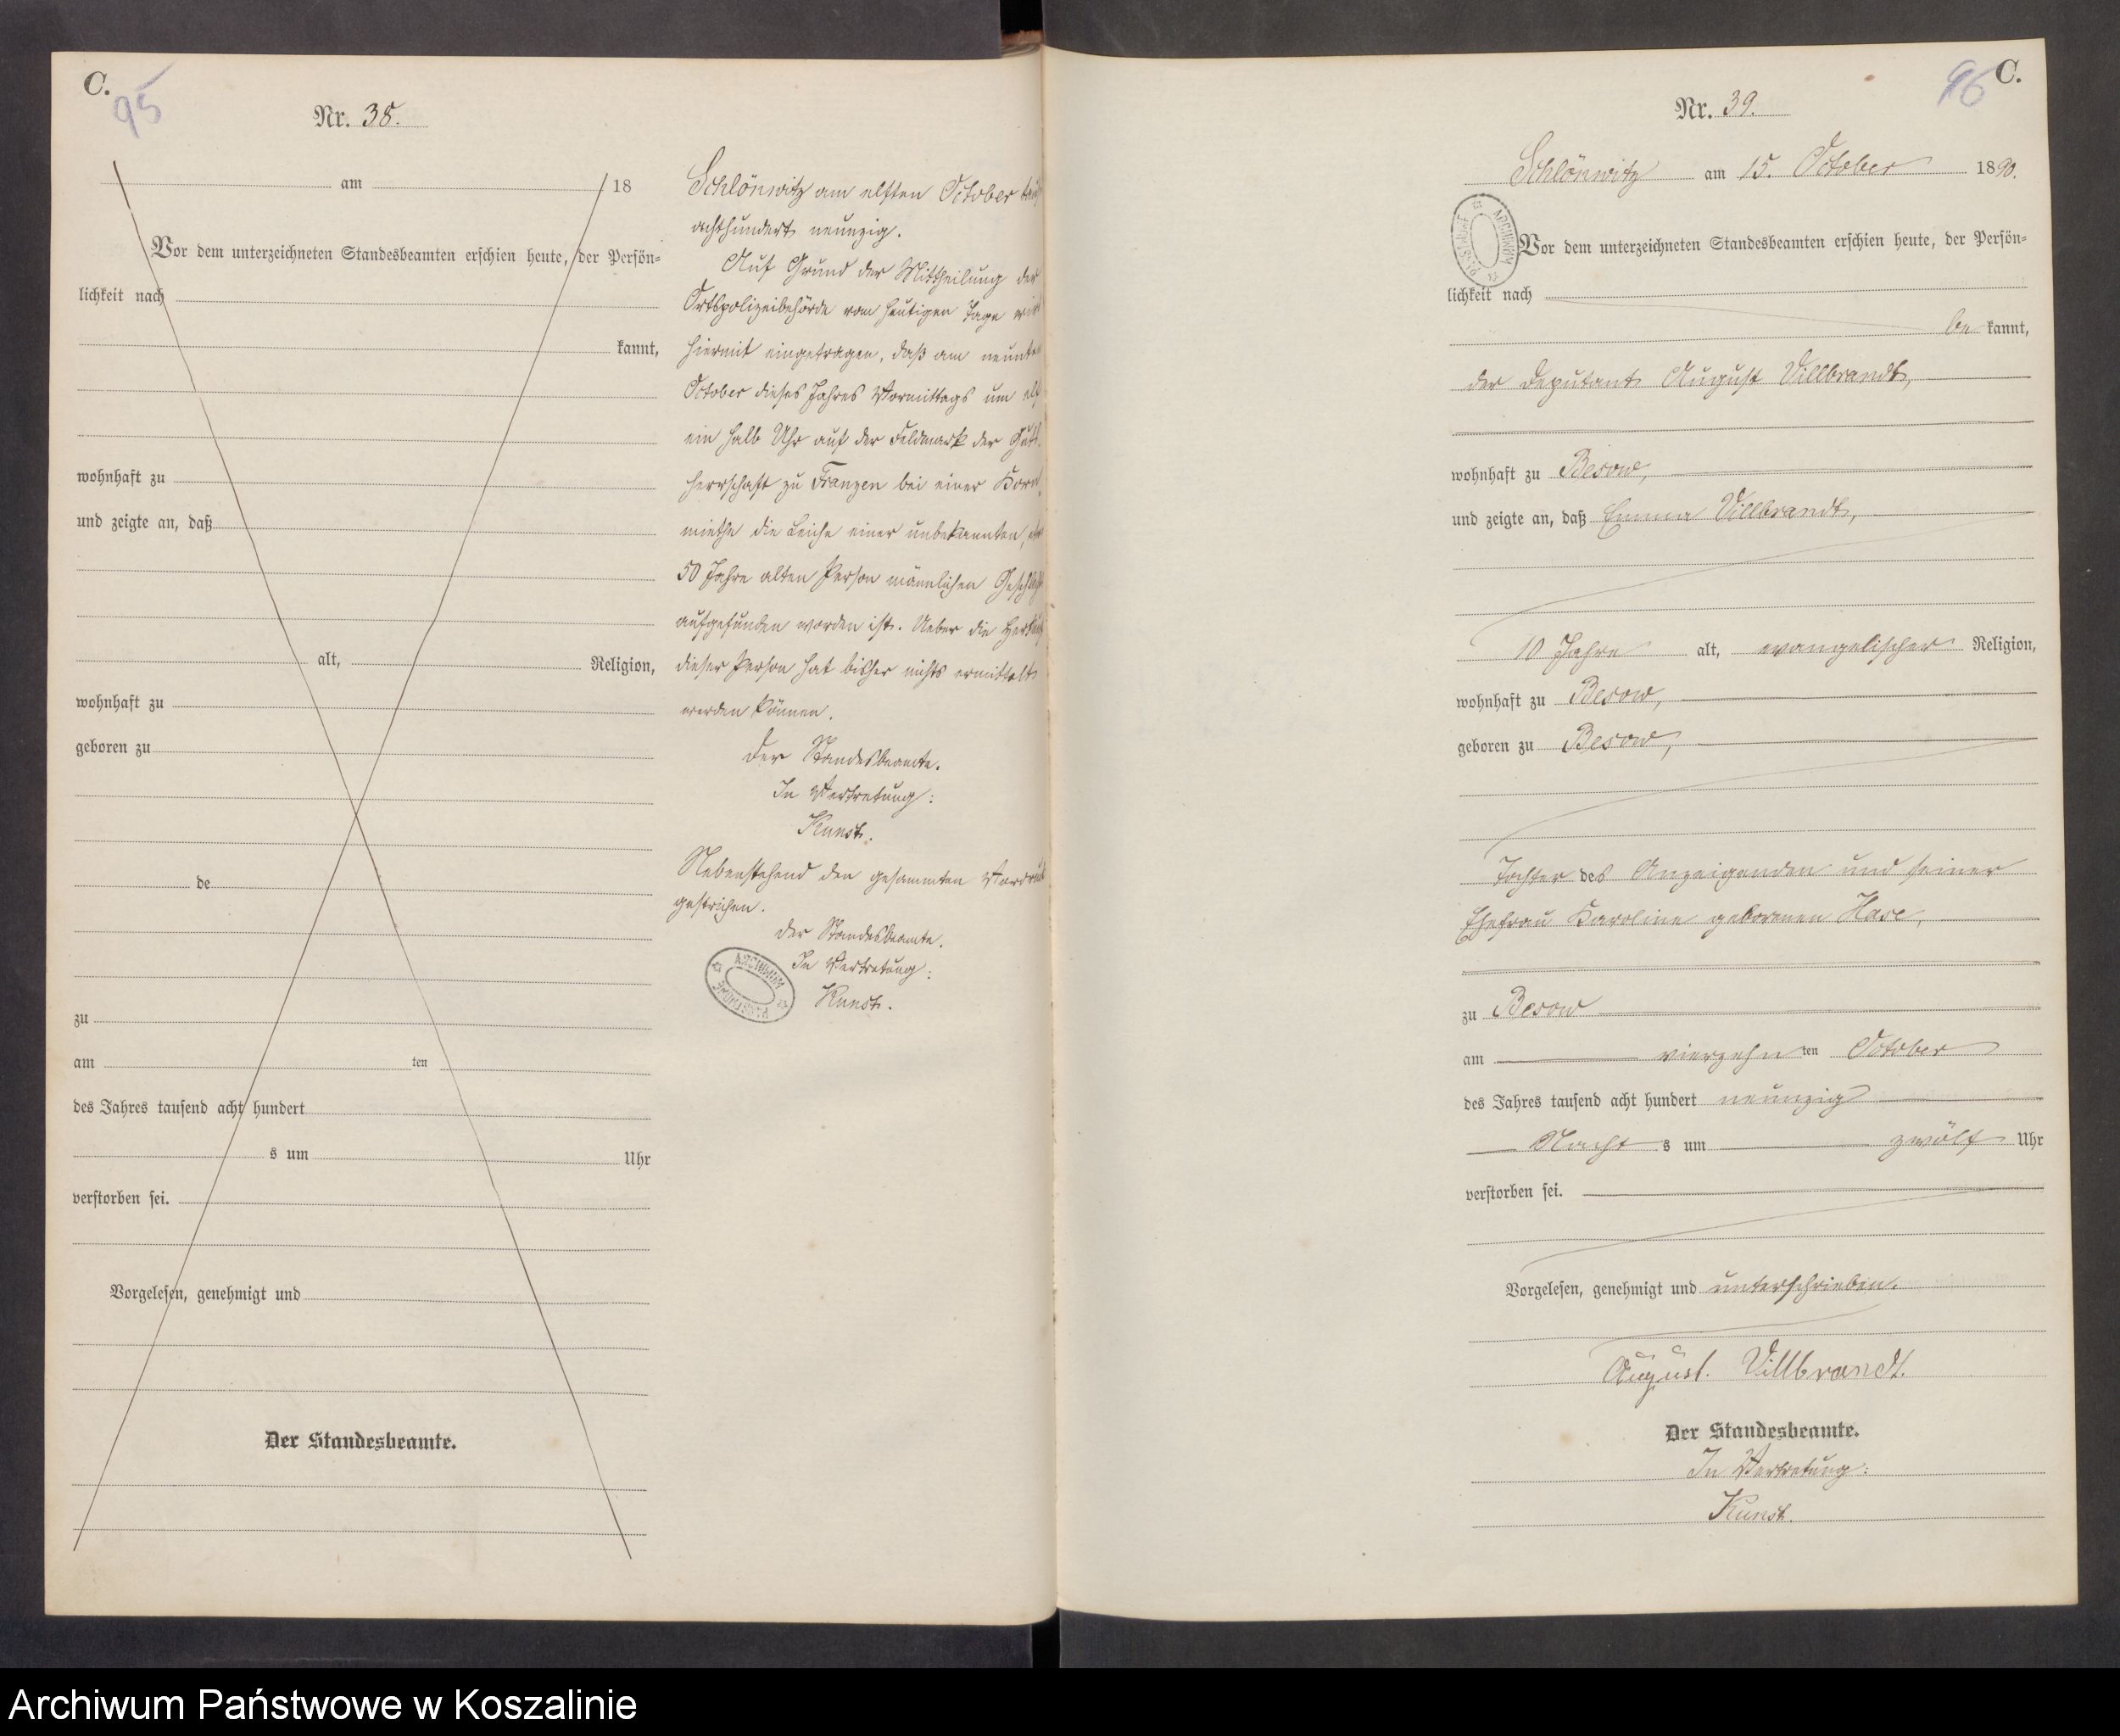 C.
95
Nr. 38.
am 18
Vor dem unterzeichneten Standesbeamten erschien heute, der Persön=
lichkeit nach
kannt,
wohnhaft zu
und zeigte an, daß
alt, Religion,
wohnhaft zu
geboren zu
de
zu
am ten
des Jahres tausend acht hundert
s um Uhr
verstorben sei.
Vorgelesen, genehmigt und
Der Standesbeamte.
Schlönwitz am elften October
achthundert neunzig.
Auf Grund der Mittheilung der
Ortspolizeibehörde vom heutigen Tage
hiermit eingetragen, daß am
October dieses Jahres Vormittags um elf
ein halb Uhr auf der Feldmark der
herrschaft zu Franzen bei einer
miethe die Leiche einer unbekannten,
50 Jahre alten Person männlichen
aufgefunden worden ist. Ueber die
dieser Person hat bisher nichts ermittelt
werden können.
Der Standesbeamte.
In Vertretung:
Kunst.
Nebenstehend den gesammten
gestrichen.
Der Standesbeamte.
In Vertretung:
Kunst.
ARCHIWUM PAŃSTWOWE
96
C.
Nr. 39.
Schlönwitz am 15. October 1890.
ARCHIWUM PAŃSTWOWE
Vor dem unterzeichneten Standesbeamten erschien heute, der Persön=
lichkeit nach
be kannt,
der Deputant August Villbrandt,
wohnhaft zu Besow,
und zeigte an, daß Emma Villbrandt,
10 Jahre alt, evangelischer Religion,
wohnhaft zu Besow,
geboren zu Besow,
Tochter des Anzeigenden und seiner
Ehefrau Karoline geborenen Hase,
zu Besow
am vierzehn ten October
des Jahres tausend acht hundert neunzig
Nacht s um zwölf Uhr
verstorben sei.
Vorgelesen, genehmigt und unterschrieben.
August. Villbrandt.
Der Standesbeamte.
In Vertretung:
Kunst.
Archiwum Państwowe w Koszalinie